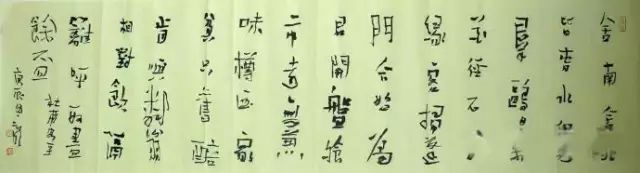 舍南舍北
皆春水但見
群鷗日日來
花徑不曾
緣客掃蓬
門今始為
君開盤飧
市遠無兼
味樽酒家
貧只舊醅
肯與鄰翁
相對飲隔
籬呼取盡
餘杯
杜甫客至
庚辰